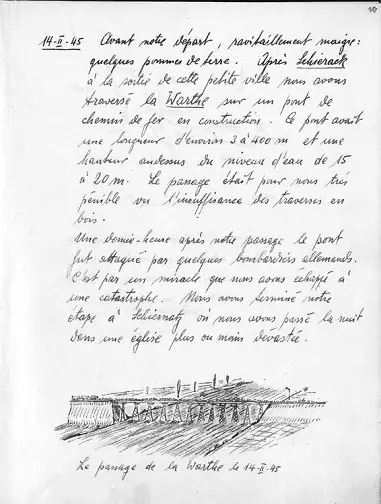 14-II-45 Avant notre départ, ravitaillement maigre:
quelques pommes de terre. Après Schierack
à la sortie de cette petite ville nous avons
traversé la Warthe sur un pont de
chemin de fer en construction. Ce pont avait
une longueur d'environ 3 à 400 m et une
hauteur audessus du niveau d'eau de 15
à 20 m. Le passage était pour nous très
pénible vu l'insuffisance des traverses en
bois.
Une demie-heure après notre passage le pont
fut attaqué par quelques bombardiers allemands.
C'est par un miracle que nous avons échappé à
une catastrophe. Nous avons terminé notre
étape à Schiernatz où nous avons passé la nuit
dans une église plus ou moins dévastée.
Le passage de la Warthe le 14-II-45